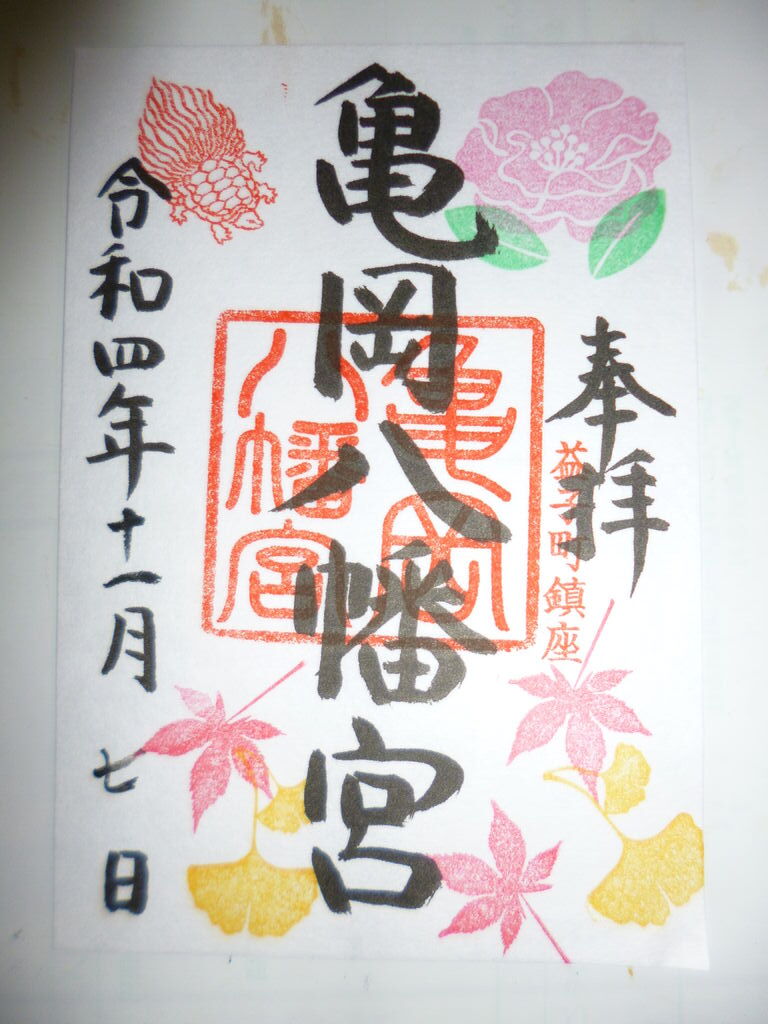 奉拝
益子町鎮座
亀岡八幡宮
亀岡
八幡宮
令和四年十一月七日